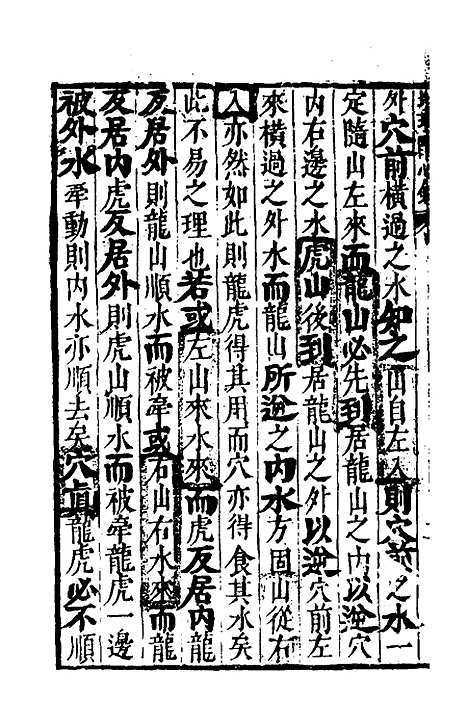 外穴前橫過之水如之山自左入則穴前之水一
定隨山左來而龍山必先到居龍山之内以逆穴
内右邊之水虎山後到居龍山之外以逆穴前左
來橫過之外水而龍山所逆之内水方固山從右
入亦然如此則龍虎得其用而穴亦得食其水矣
此不易之理也若或左山來水來而虎反居内龍
反居外則龍山順水而被牽或右山右水來而龍
反居内虎反居外則虎山順水而被牽龍虎一邊
被外水牽動則内水亦順去矣穴眞龍虎必不順